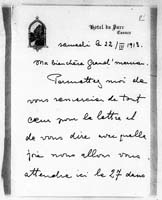 Hotel du Parc
Cannes
samedi le 22/III 1913.
Ma bien chère Grand'maman.
Permettez moi de
vous remercier de tout
cœur pour la lettre et
de vous dire avec quelle
joie nous allons vous
attendre ici le 27 dans